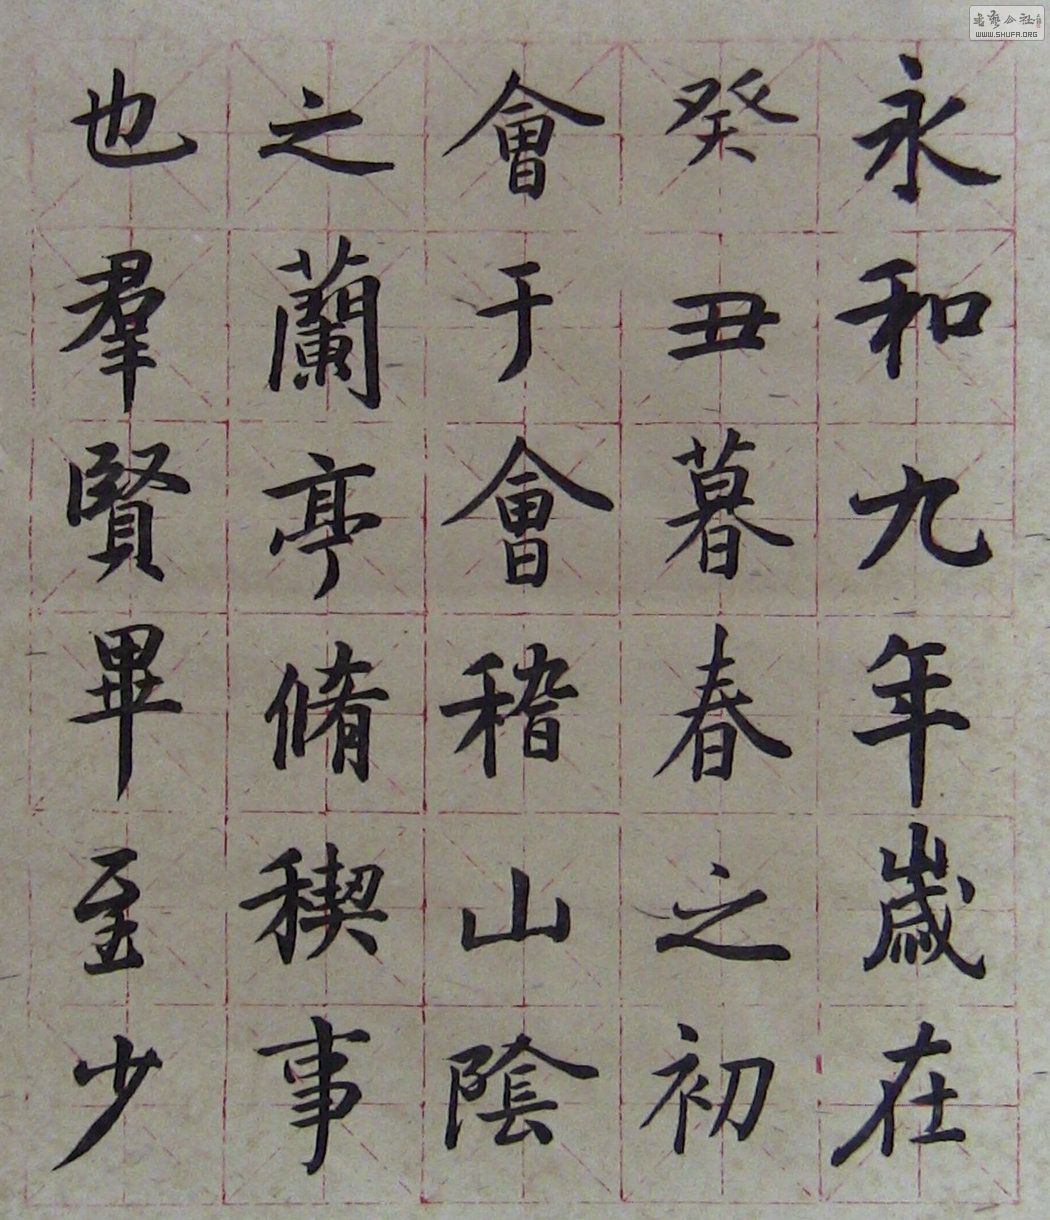 永和九年歲在
癸丑暮春之初
會于會稽山陰
之蘭亭脩稧事
也羣賢畢至少
WWW.SHUFA.ORG